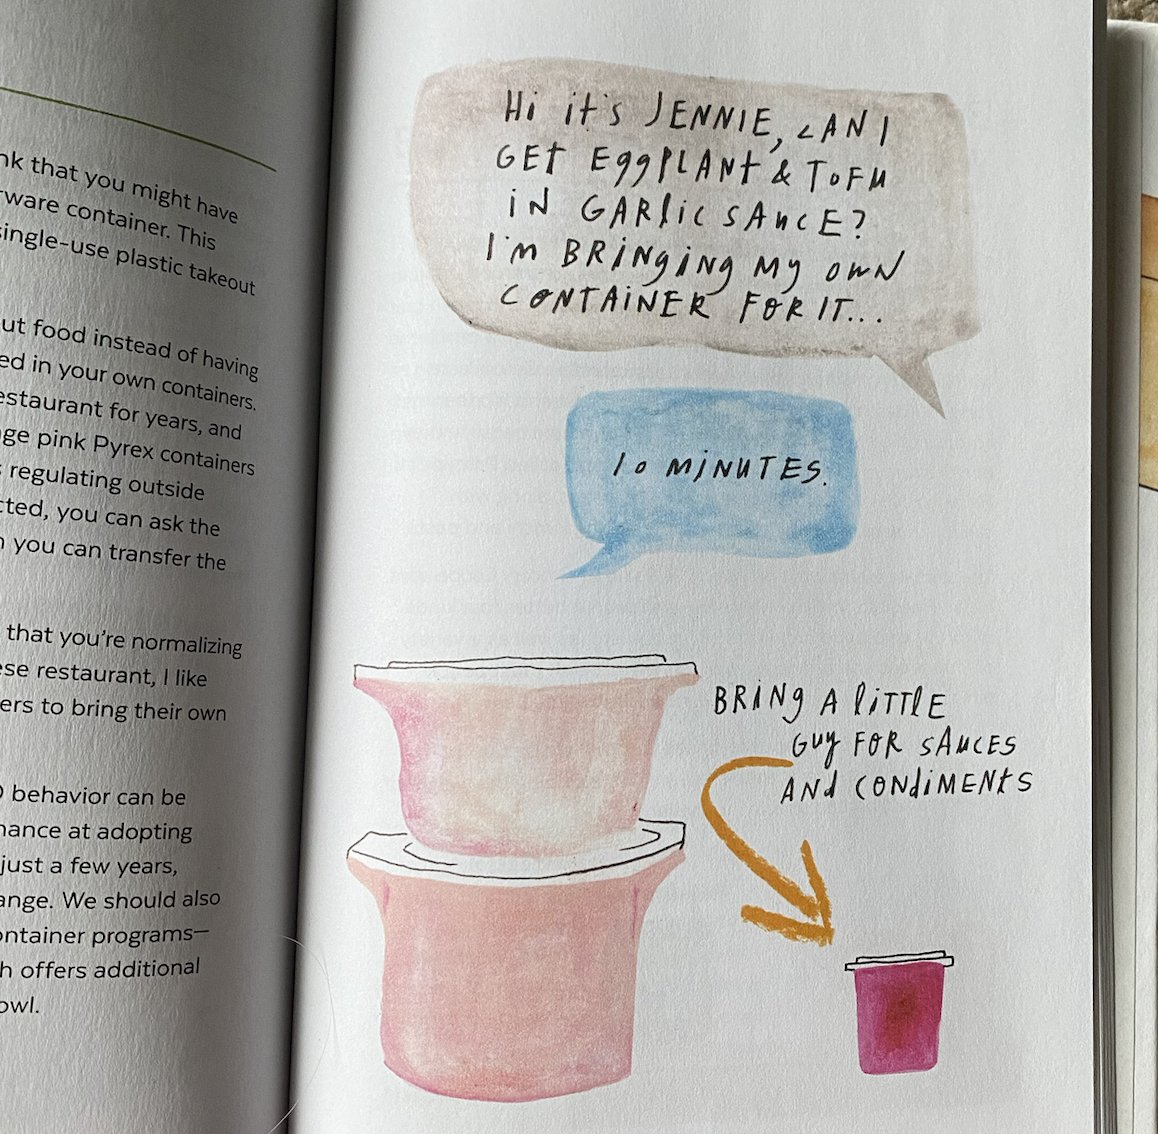 nk that you might have
ware container. This
single-use plastic takeout
ut food instead of having
ed in your own containers.
estaurant for years, and
ge pink Pyrex containers
regulating outside
cted, you can ask the
you can transfer the
that you're normalizing
ese restaurant, I like
ers to bring their own
behavior can be
hance at adopting
just a few years,
ange. We should also
ontainer programs—
h offers additional
owl.
Hi it's JENNIE, CAN I
GET EggPLANt & ToFU
iN GARlic SAUCE?
I'M BRiNgiNg My OWN
CONTAiNER FOR IT...
10 MiNUTES.
BRiNg A liTTlE
Guy FOR SAUCES
ANd CONdiMENtS